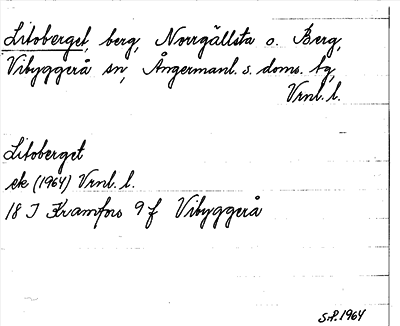 Litoberget, berg, Norrgällsta o. Berg,
Vibyggerå sn, Ångermanl. s. doms. tg,
Vrnl. l.
Litoberget
ek (1964) Vrnl. l.
18 J Kramfors 9 f Vibyggerå
S.P. 1964